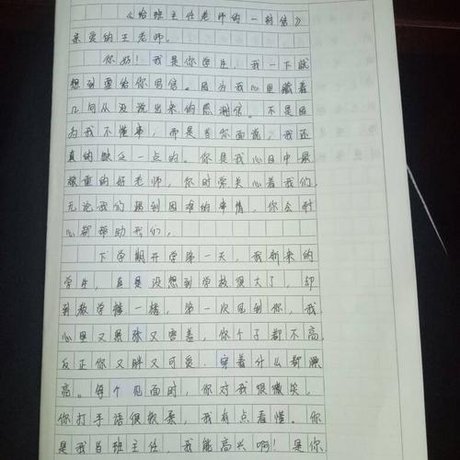 《给班主任老师的一封信》
亲爱的王老师。
你好！我是你学生，我一下就
想到要给你写信。因为我心里藏着
几句从没说出来的感谢信。不是因
为我不懂事，而是当你面说，我还
真的缺乏一点的。你是我心目中最
敬重的好老师，你时常关心着我们
无论我们遇到困难的事情，你会耐
心帮帮助我们。
下学期开学第一天，我新来的
学生，真是没想到学校很大了，却
到教学楼一楼，第一次见到你，我
心里又紧张又害羞，你个子都不高
反正你又胖又可爱，穿着什么都漂
亮。每个见面时，你对我很微笑。
你打手语很欢柔，我有点看懂。你
是我当班主任，我能高兴啊！是你